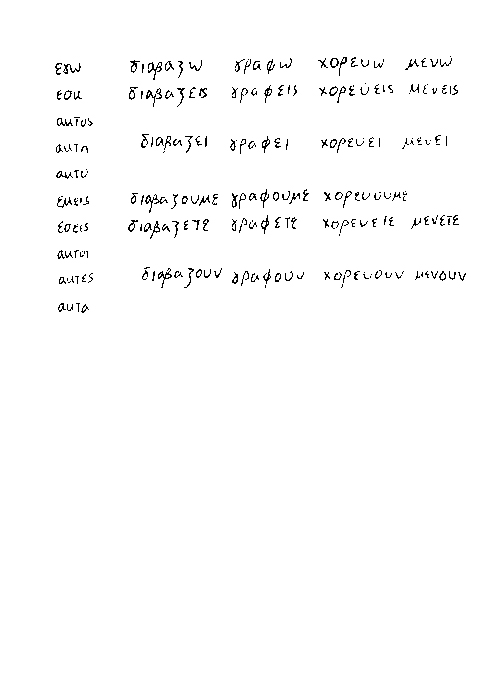 εγω διαβαζω γραφω χορευω μενω
εσυ διαβαζεις γραφεις χορεύεις μένεις
αυτος
αυτη διαβαζει γραφει χορευει μενει
αυτο
εμεις διαβαζουμε γραφουμε χορευουμε
εσεις διαβαζετε γραφετε χορευετε μενετε
αυτοι
αυτες διαβαζουν γραφουν χορευουν μενουν
αυτα